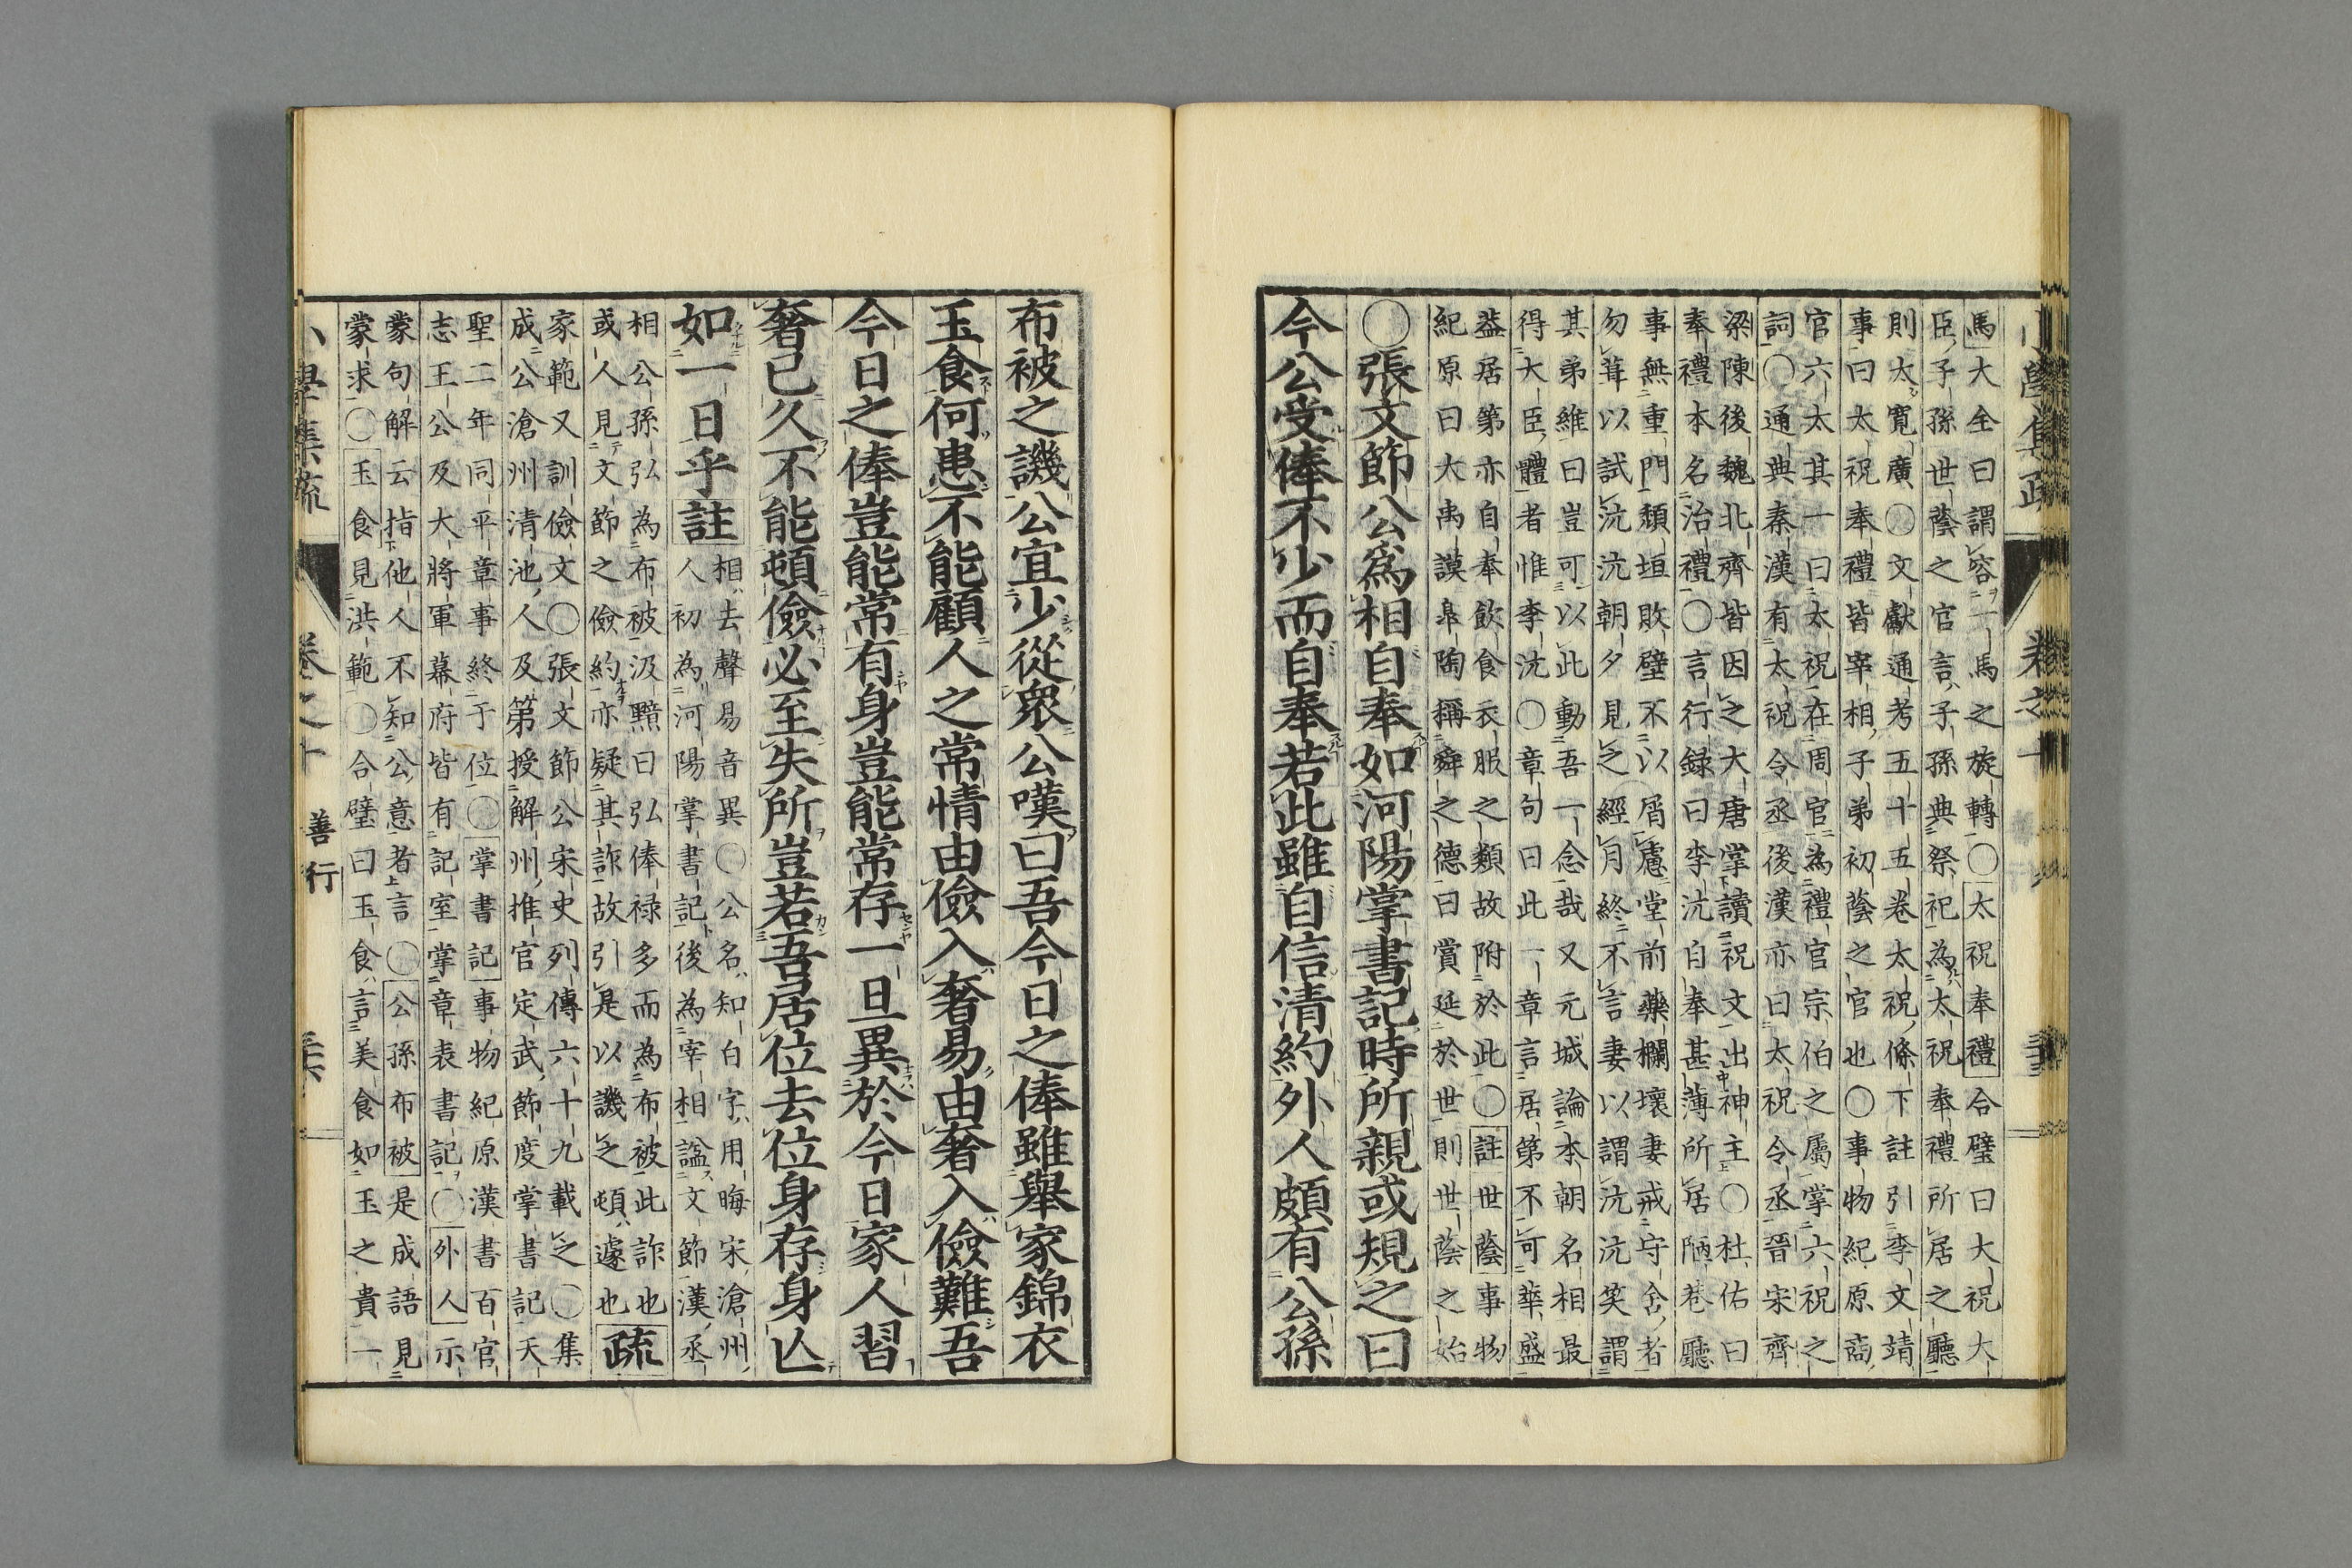 馬大全曰謂容一馬之旋轉〇太祝奉禮合璧曰大祝大
臣子孫世蔭之官言子孫典祭祀為太祝奉禮所居之廳
則太寬廣〇文獻通考五十五卷太祝條下註引李文靖
事曰太祝奉禮皆宰相子弟初蔭之官也〇事物紀原商
官六太其一曰太祝在周官為禮官宗伯之屬掌六祝之
詞〇通典秦漢有太祝令丞後漢亦曰太祝令丞晉宋齊
梁陳後魏北齊皆因之大唐掌讀祝文出神主〇杜佑曰
奉禮本名治禮〇言行録曰李沆自奉甚薄所居陋巷廳
事無重門頽垣敗壁不以屑慮堂前藥欄壞妻戒守舍者
勿葺以試沆沆朝夕見之經月終不言妻以謂沆沆笑謂
其弟維曰豈可以此動吾一念哉又元城論本朝名相最
得大臣體者惟李沆〇章句曰此一章言居第不可華盛
葢居第亦自奉飲食衣服之類故附於此〇註世蔭事物
紀原曰大禹謨皐陶稱舜之德曰賞延於世則世蔭之始
〇張文節公為相自奉如河陽掌書記時所親或規之曰
今公受俸不少而自奉若此雖自信清約外人頗有公孫
布被之譏公宜少從衆公嘆曰吾今日之俸雖舉家錦衣
玉食何患不能顧人之常情由儉入奢易由奢入儉難吾
今日之俸豈能常有身豈能常存一旦異於今日家人習
奢已久不能頓儉必至失所豈若吾居位去位身存身亾
如一日乎註
相去聲易音異〇公名知白字用晦宋滄州
人初為河陽掌書記後為宰相諡文節漢丞
相公孫弘為布被汲黯曰弘俸禄多而為布被此詐也
或人見文節之儉約亦疑其詐故引是以譏之頓遽也疏
家範又訓儉文〇張文節公宋史列傳六十九載之〇集
成公滄州清池人及第授解州推官定武節度掌書記天
聖二年同平章事終于位〇掌書記事物紀原漢書百官
志王公及大將軍幕府皆有記室掌章表書記〇外人示
蒙句解云指他人不知公意者言〇公孫布被是成語見
蒙求〇玉食見洪範〇合璧曰玉食言美食如玉之貴一
小學集疏
卷之十
善行